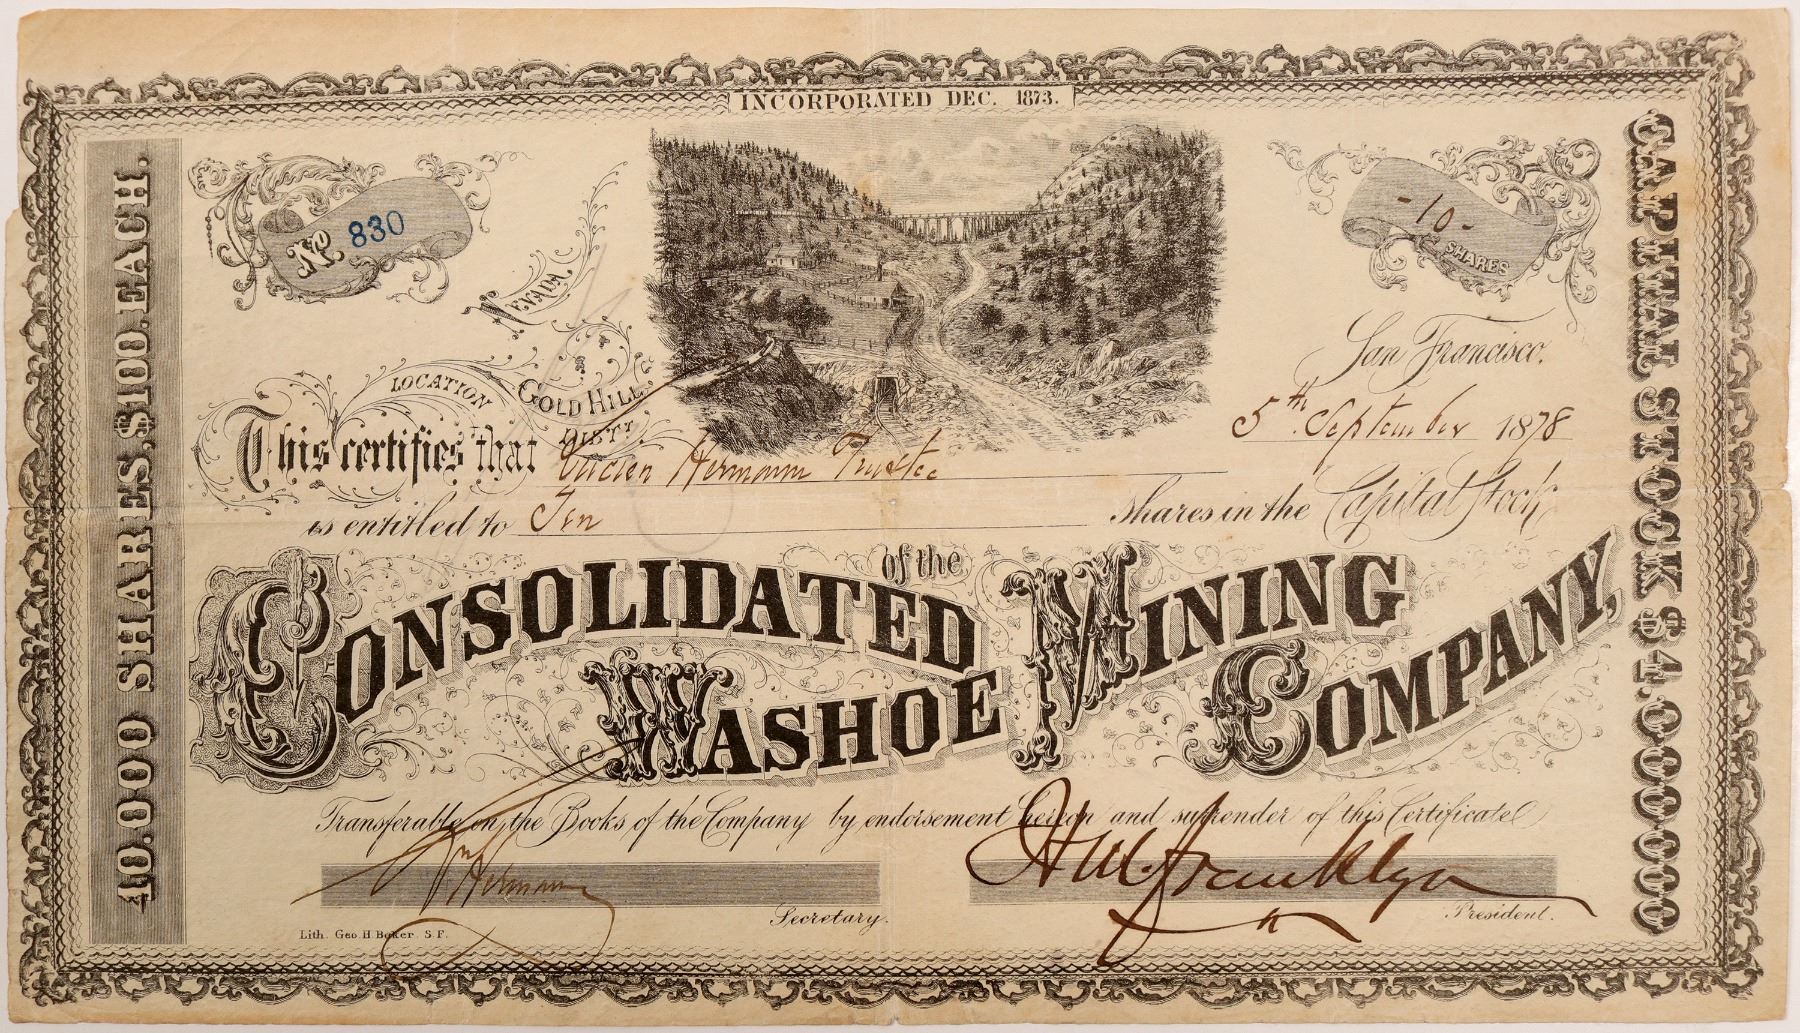 INCORPORATED DEC. 1873.
40.000 SHARES, $100. EACH.
CAPITAL STOCK $4,000000
No. 830
-10-
SHARES
NEVADA.
LOCATION
GOLD HILL
DIST.
San Francisco.
5th September 1878
This certifies that Lucien Hermann Trustee
is entitled to Ten Shares in the Capital Stock
of the
CONSOLIDATED
WASHOE
MINING
COMPANY,
Transferable on the Books of the Company by endorsement hereon and surrender of this Certificate
Hermann
Franklyn
Secretary.
President.
Lith. Geo H. Baker. S.F.